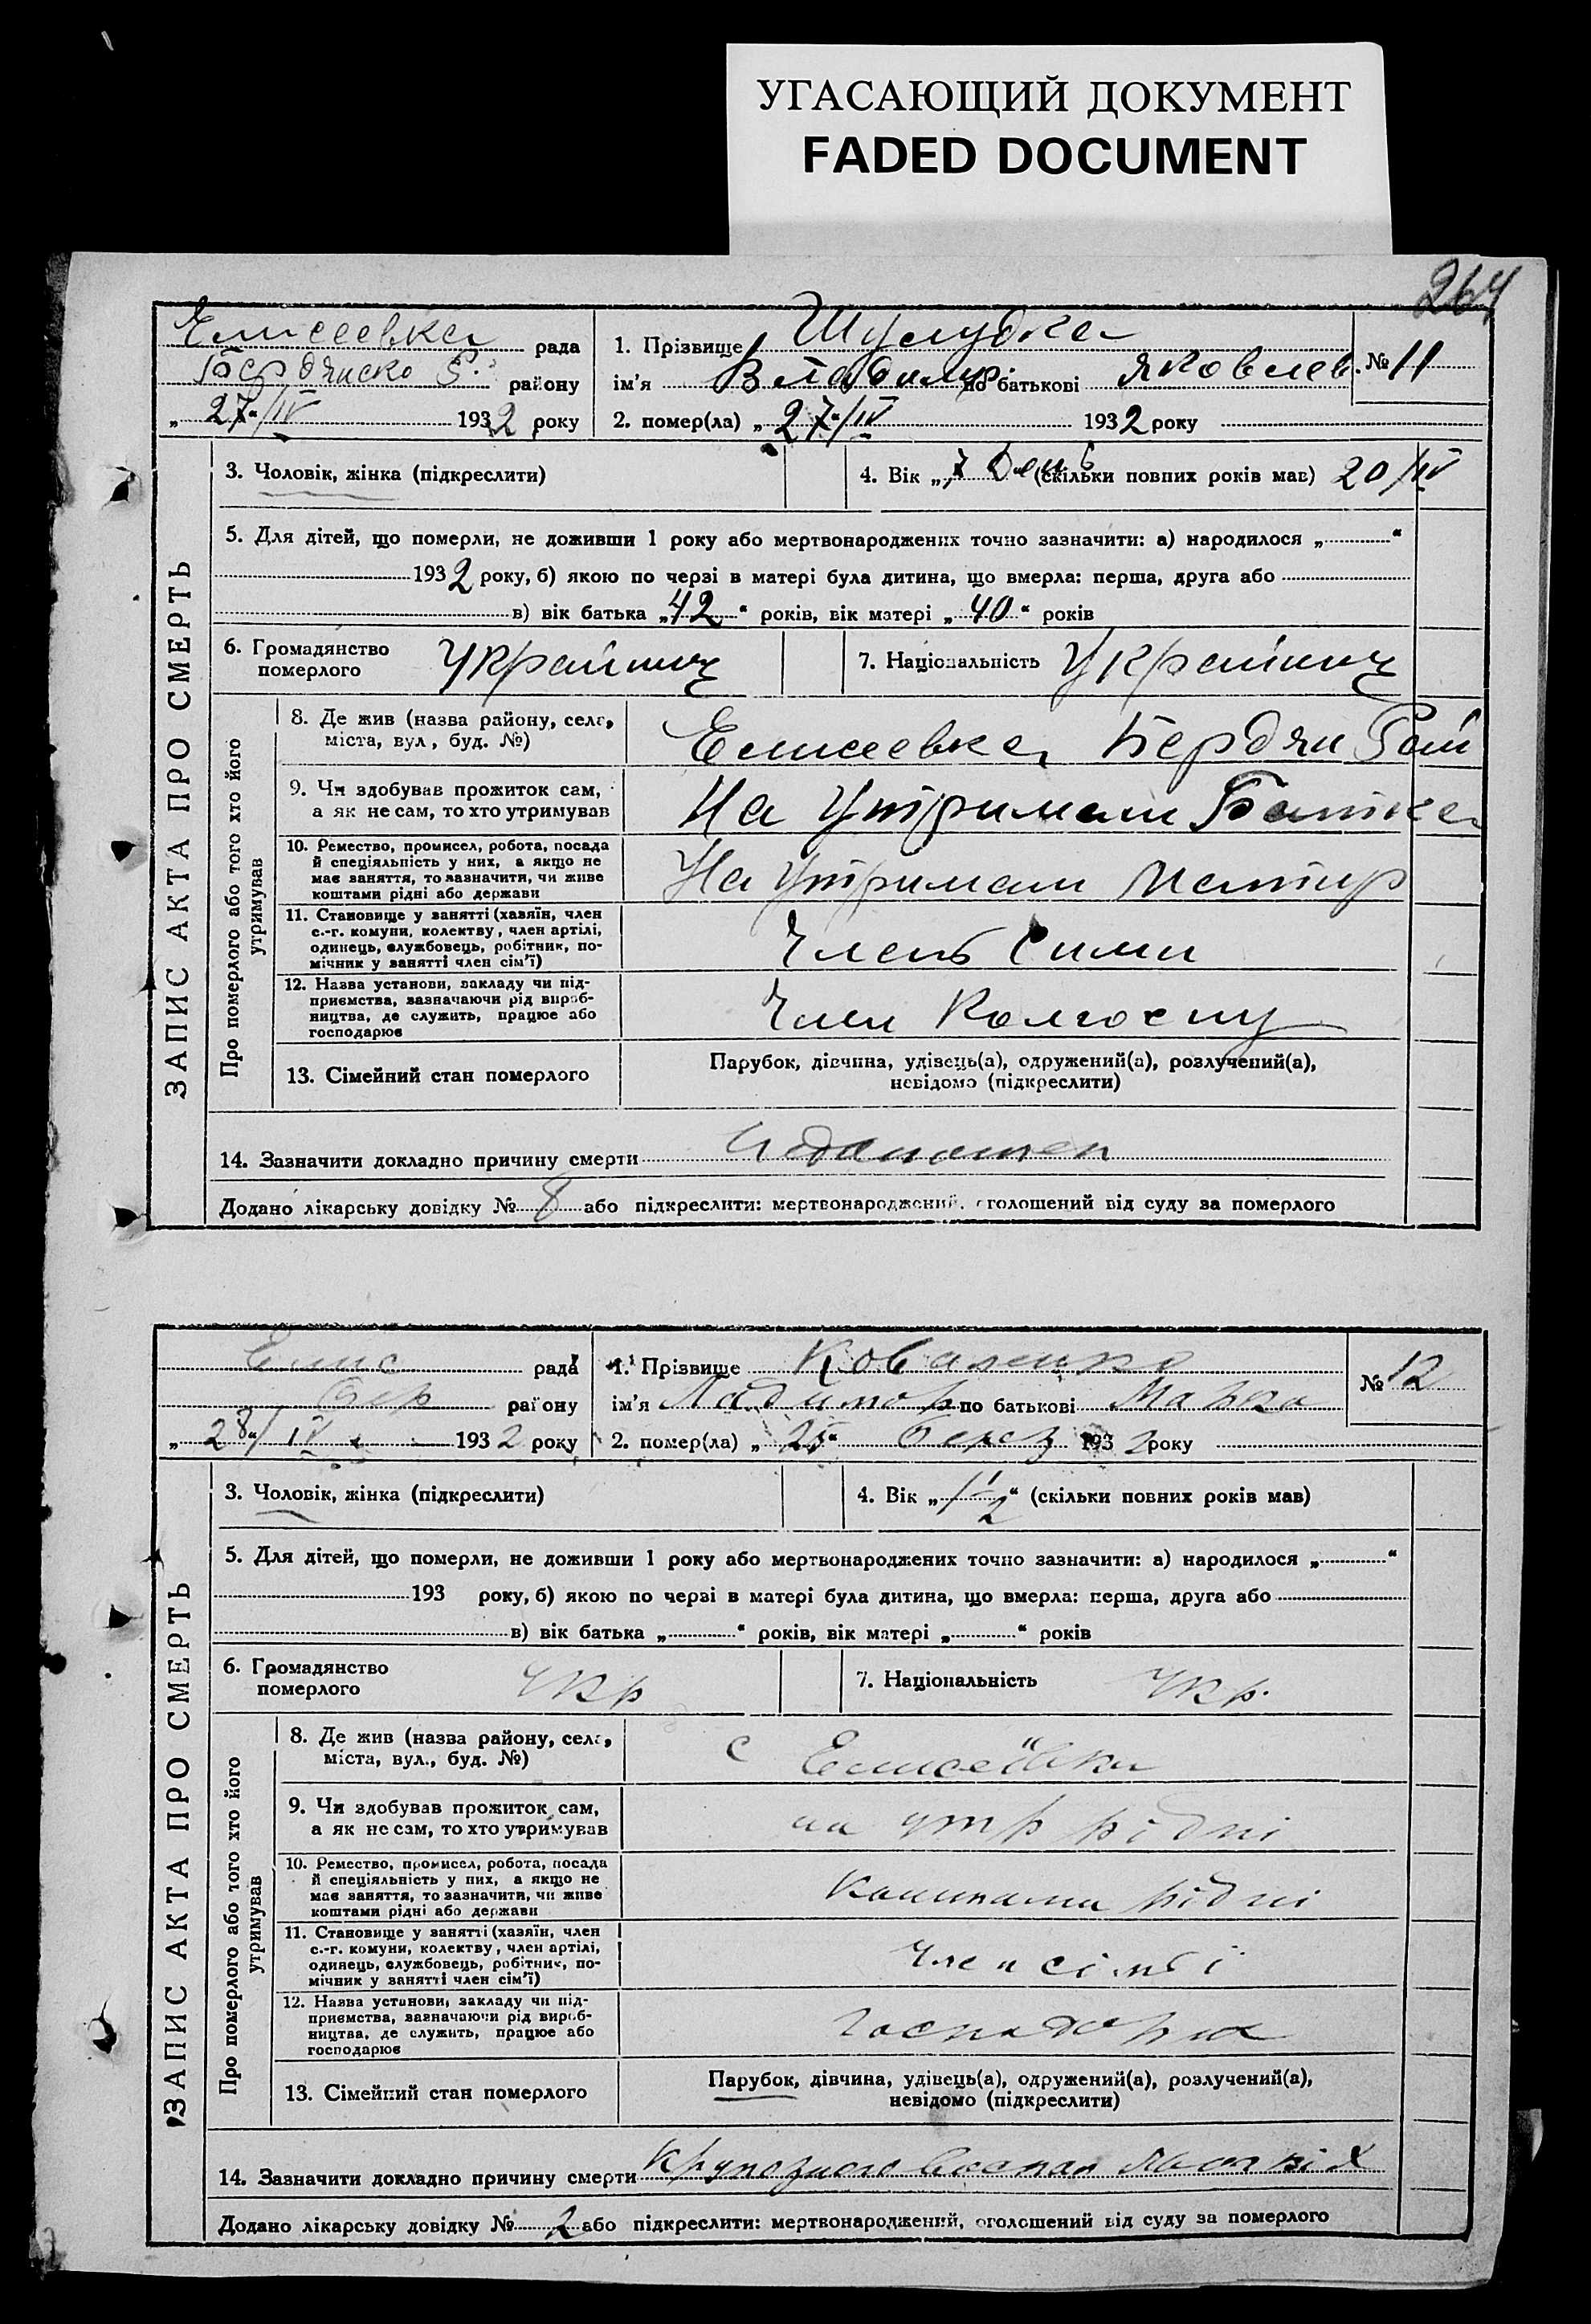 УГАСАЮЩИЙ ДОКУМЕНТ
FADED DOCUMENT
264
Елисеевка рада
Бердянско Р. району
„ 27“/IV 1932 року
1. Прізвище Шулудка
ім'я Владимир по батькові Яковлев
2. помер(ла) „ 27“/IV 1932 року
№ 11
ЗАПИС АКТА ПРО СМЕРТЬ
3. Чоловік, жінка (підкреслити)
4. Вік „ 7 День (скільки повних років мав) 20/IV
5. Для дітей, що померли, не доживши 1 року або мертвонароджених точно зазначити: а) народилося „ “
1932 року, б) якою по черзі в матері була дитина, що вмерла: перша, друга або
в) вік батька „42“ років, вік матері „40“ років
6. Громадянство померлого Украйинц
7. Національність Украйинц
Про померлого або того хто його утримував
8. Де жив (назва району, села, міста, вул., буд. №) Елисеевка Бердян Рай
9. Чи здобував прожиток сам, а як не сам, то хто утримував На Утримани Батька
10. Ремество, промисел, робота, посада й спеціяльність у них, а якщо не має заняття, то зазначити, чи живе коштами рідні або держави На Утримани Матир
11. Становище у занятті (хазяїн, член с.-г. комуни, колектву, член артілі, одинець, службовець, робітник, помічник у занятті член сім'ї) Члень Сими
12. Назва установи, закладу чи підприємства, зазначаючи рід виробництва, де служить, працює або господарює Член Колгоспу
13. Сімейний стан померлого Парубок, дівчина, удівець(а), одружений(а), розлучений(а),
невідомо (підкреслити)
14. Зазначити докладно причину смерти
Додано лікарську довідку № 8 або підкреслити: мертвонароджений, оголошений від суду за померлого
Елис рада
Бер району
„ 28“/IV 1932 року
1. Прізвище Коваленко
ім'я по батькові Марка
2. помер(ла) „ 25“ Берез 1932 року
№ 12
ЗАПИС АКТА ПРО СМЕРТЬ
3. Чоловік, жінка (підкреслити)
4. Вік „1 1/2“ (скільки повних років мав)
5. Для дітей, що померли, не доживши 1 року або мертвонароджених точно зазначити: а) народилося „ “
193 року, б) якою по черзі в матері була дитина, що вмерла: перша, друга або
в) вік батька „ “ років, вік матері „ “ років
6. Громадянство померлого Укр
7. Національність Укр.
Про померлого або того хто його утримував
8. Де жив (назва району, села, міста, вул., буд. №) с Елисеївка
9. Чи здобував прожиток сам, а як не сам, то хто утримував на утр рідні
10. Ремество, промисел, робота, посада й спеціяльність у них, а якщо не має заняття, то зазначити, чи живе коштами рідні або держави Коштами рідні
11. Становище у занятті (хазяїн, член с.-г. комуни, колектву, член артілі, одинець, службовець, робітник, помічник у занятті член сім'ї) Член сімьї
12. Назва установи, закладу чи підприємства, зазначаючи рід виробництва, де служить, працює або господарює
13. Сімейний стан померлого Парубок, дівчина, удівець(а), одружений(а), розлучений(а),
невідомо (підкреслити)
14. Зазначити докладно причину смерти Крупозного воспал
Додано лікарську довідку № 2 або підкреслити: мертвонароджений, оголошений від суду за померлого